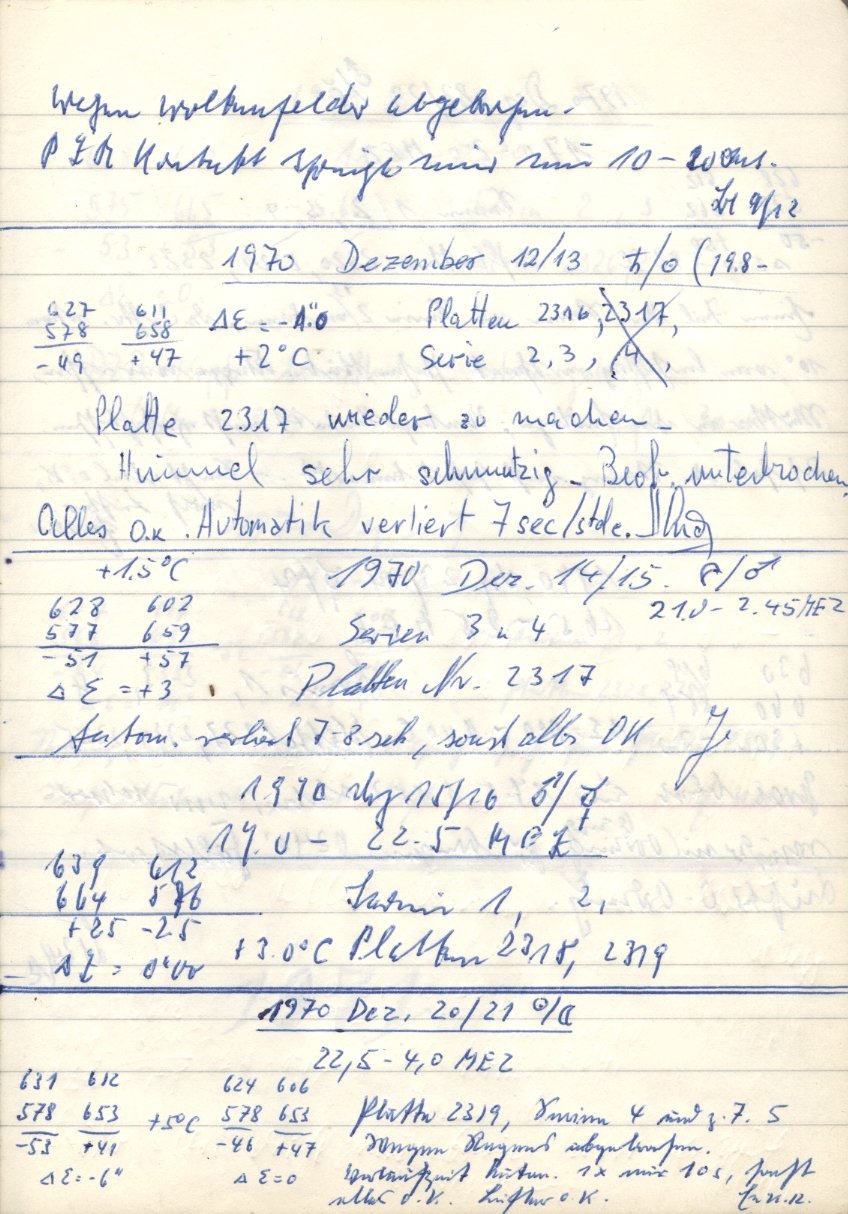 wegen Wolkenfelder abgebrochen.
PZR Kontakt springt nur um 10 - 20
9/12
1970 Dezember 12/13 ♄/☉ (19.8 -
627 611 ΔE = -1."0 Platten 2316, 2317,
578 658 +2°C Serie 2, 3, 4,
-49 +47
Platte 2317 wieder zu machen -
Himmel sehr schmutzig - Beob. unterbrochen
Alles O.K. Automatik verliert 7 sec/stde.
+1.5°C 1970 Dez. 14/15. /♂
628 602 21.0 - 2.45 MEZ
577 659 Serien 3 u 4
-51 +57
ΔE = +3 Platten Nr. 2317
Autom. verliert 7-8 sek, sonst alles OK
1970 Dez 15/16 ♂/☿
17.0 - 22.5 MEZ
639 612
664 576 Serie 1, 2,
+25 -25
ΔE = 0"00 +3.0°C Platten 2318, 2319
1970 Dez. 20/21 ☉/☾
22,5 - 4,0 MEZ
631 612 624 606
578 653 +5°C 578 653 Platte 2319, Serien 4 und z.T. 5
-53 +41 -46 +47 Wegen Regens abgebrochen.
ΔE = -6" ΔE = 0 1x nur 10s, sonst
alles O.K. Lüfter O.K.